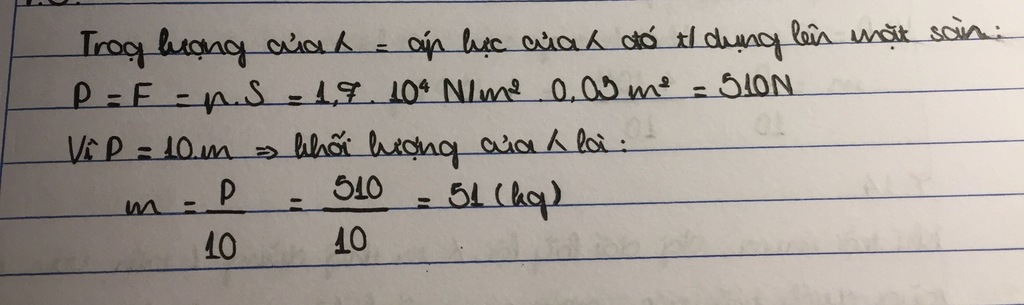 Trọg lượng của ʎ = áp lực của ʎ đó t/dụng lên mặt sàn:
P = F = p.S = 1,7 . 10⁴ N/m² . 0,03 m² = 510N
Vì P = 10.m ⇒ khối lượng của ʎ là:
m = P/10 = 510/10 = 51 (kg)